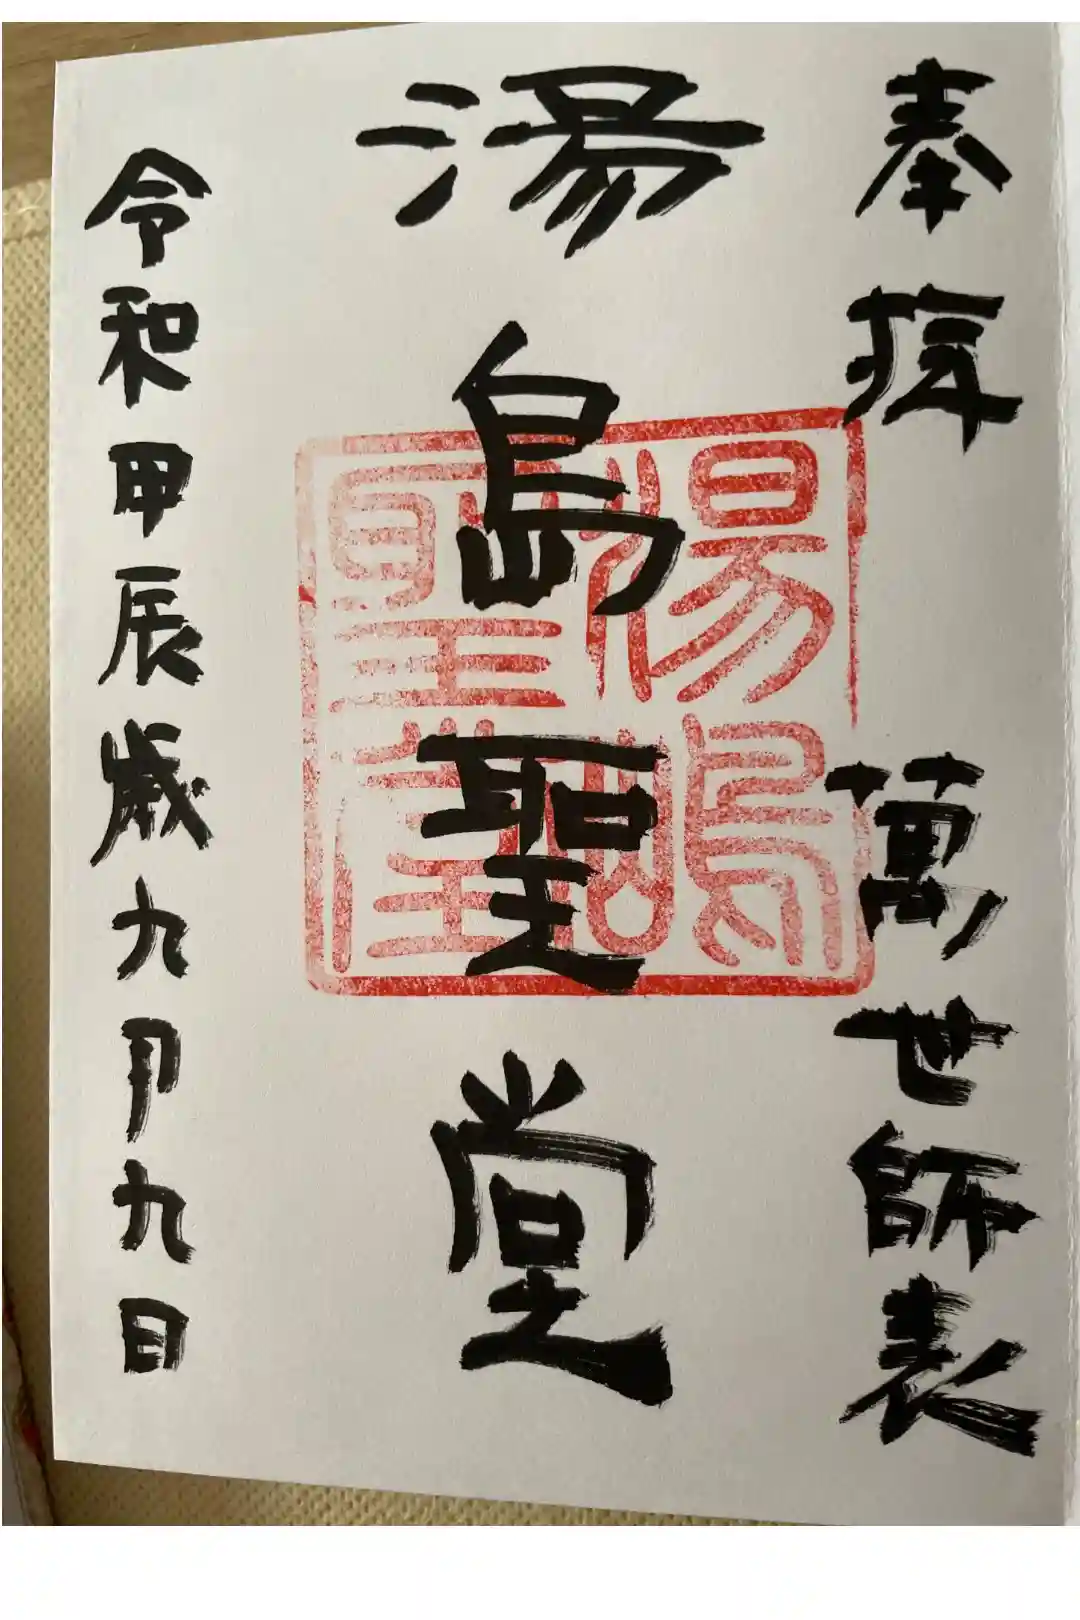 奉拝 萬世師表
湯島聖堂
湯島聖堂
令和甲辰歳九月九日